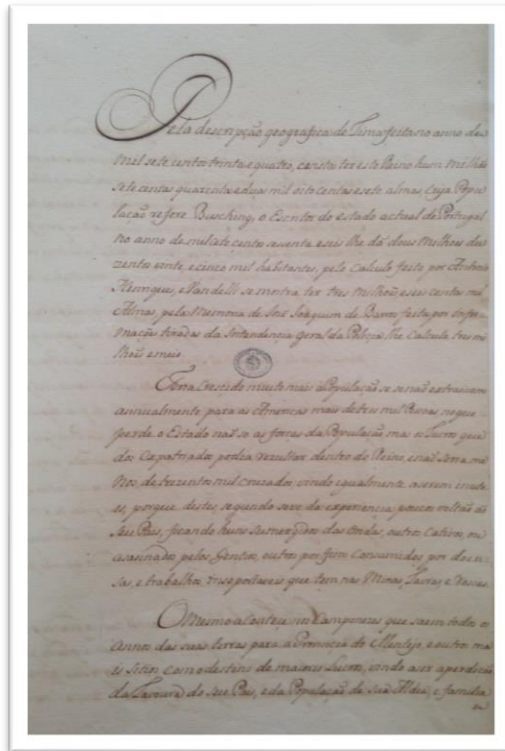 Pela descripção geografica de Lima feita no anno de
mil sete centos trinta e quatro, consta ter este Reino hum milhão
sete centas quarenta e duas mil oito centas e sete almas, cuja Popu
lação refere Busching, o Escritor do estado actual de Portugal
no anno de mil sete centos secenta e seis lhe dá dous milhoẽs du
zentos vinte e cinco mil habitantes, pelo calculo feito por Antonio
Henriques, e Vandelli se mostra ter tres milhoẽs e seis centas mil
Almas, pela Memoria de José Joaquim de Barros feita por infor
maçoẽs tiradas da Intendencia geral da Policia lhe calcula tres mi
lhoẽs e meio.
Teria crescido muito mais a População se se naõ extraissem
annualmente para as Americas mais de tres mil Pessoas no que
perde o Estado naõ só as forças da População mas os Lucros que
dos Expatriados podia rezultar dentro do Reino, e naõ seria me
nos de trezentos mil cruzados vindo igualmente a serem inute
es, porque destes, segundo sabe da experiencia, poucos voltaõ ao
seu Pais, ficando huns sumergidos das Ondas, outros Cativos, ou
asasinados pelos Gentios, outros por fim consumidos por doen
sas, e trabalhos insoportaveis que tem nas Minas, Lavras, e
O mesmo acontece nos Camponezes que saem todos os
Annos das suas terras para a Provincia do Alentejo, e outros ma
is Sitios com o destino de maiores Lucros, vindo a ser a perdição
da Lavoura do seu Pais, e da População da sua Aldeia, e familia